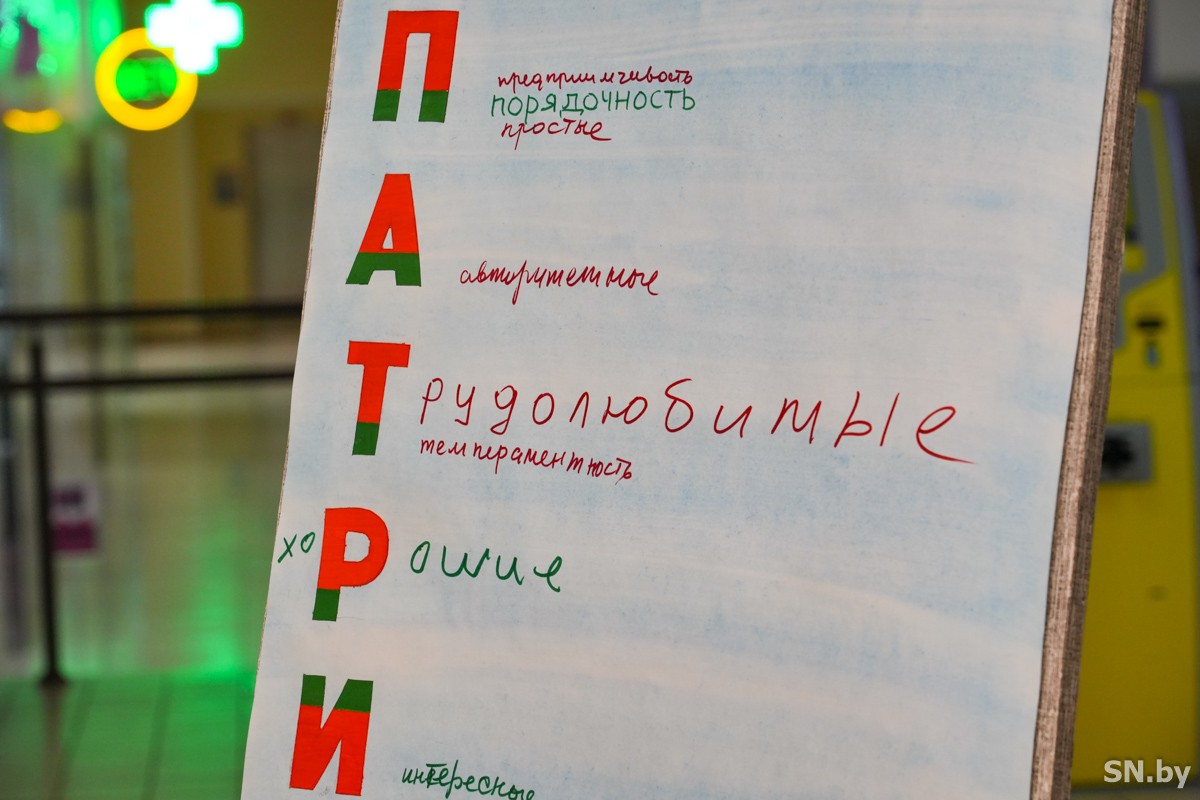 П
предприимчивость
порядочность
простые
А
авторитетные
Трудолюбимые
темпераментность
хоРошие
И
интересные
SN.by